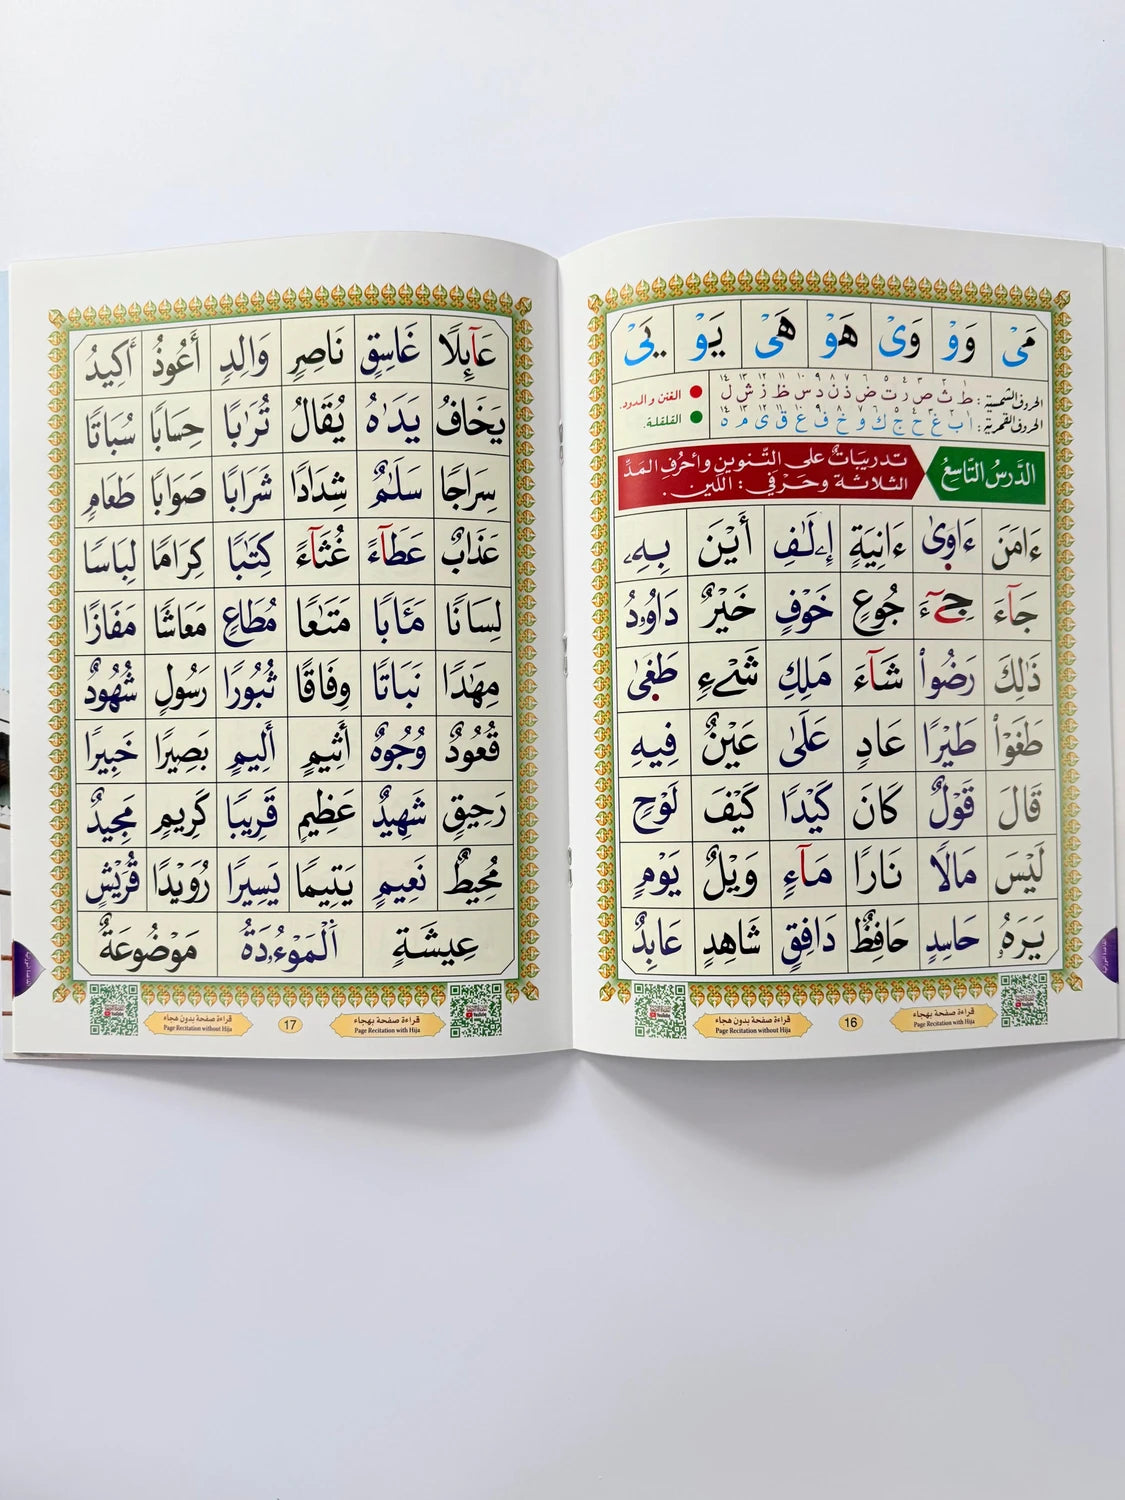 مَىْ وَوْ وَىْ هَوْ هَىْ يَوْ يَىْ
١ ٢ ٣ ٤ ٥ ٦ ٧ ٨ ٩ ١٠ ١١ ١٢ ١٣ ١٤
الحروف الشمسية: ط ث ص ر ت ض ذ ن د س ظ ز ش ل
الغنن والمدود.
١ ٢ ٣ ٤ ٥ ٦ ٧ ٨ ٩ ١٠ ١١ ١٢ ١٣ ١٤
الحروف القمرية: ا ب غ ح ج ك و خ ف ع ق ى م ه
القلقلة.
الدَّرسُ التَّاسِعُ
تدريبَاتٌ على التَّنوينِ وأحرُفِ المَدِّ
الثلاثة وحَرْفي: اللِّين.
ءَامَنَ ءَاوِىٰ ءَانِيَةٍ إِۦلَٰفِ أَيْنَ بِهِۦ
جَآءَ جِىٓءَ جُوعٍ خَوْفٍ خَيْرٌ دَاوُۥدُ
ذَٰلِكَ رَضُواْ شَآءَ مَلِكِ شَىْءٍ طَغَىٰ
طَغَوْاْ طَيْرًا عَادٍ عَلَىٰ عَيْنٌ فِيهِ
قَالَ قَوْلٌ كَانَ كَيْدًا كَيْفَ لَوْحٍ
لَيْسَ مَالًا نَارًا مَآءٍ وَيْلٌ يَوْمٍ
يَرَهُۥ حَاسِدٍ حَافِظٌ دَافِقٍ شَاهِدٍ عَابِدٌ
قراءة صفحة بهجاء
Page Recitation with Hija
16
قراءة صفحة بدون هجاء
Page Recitation without Hija
عَآئِلًا غَاسِقٍ نَاصِرٍ وَالِدٍ أَعُوذُ أَكِيدُ
يَخَافُ يَدَاهُ يُقَالُ تُرَٰبًا حِسَابًا سُبَاتًا
سِرَاجًا سَلَٰمٌ شِدَادًا شَرَابًا صَوَابًا طَعَامٍ
عَذَابٌ عَطَآءً غُثَآءً كِتَٰبًا كِرَامًا لِبَاسًا
لِسَانًا مَـَٔابًا مَتَٰعًا مُطَاعٍ مَعَاشًا مَفَازًا
مِهَٰدًا نَبَاتًا وِفَاقًا ثُبُورًا رَسُولٍ شُهُودٌ
قُعُودٌ وُجُوهٌ أَثِيمٍ أَلِيمٍ بَصِيرًا خَبِيرًا
رَحِيقٍ شَهِيدٌ عَظِيمٍ قَرِيبًا كَرِيمٍ مَجِيدٌ
مُحِيطٌ نَعِيمٍ يَتِيمًا يَسِيرًا رُوَيْدًا قُرَيْشٍ
عِيشَةٍ الْمَوْءُۥدَةُ مَوْضُوعَةٌ
قراءة صفحة بهجاء
Page Recitation with Hija
17
قراءة صفحة بدون هجاء
Page Recitation without Hija